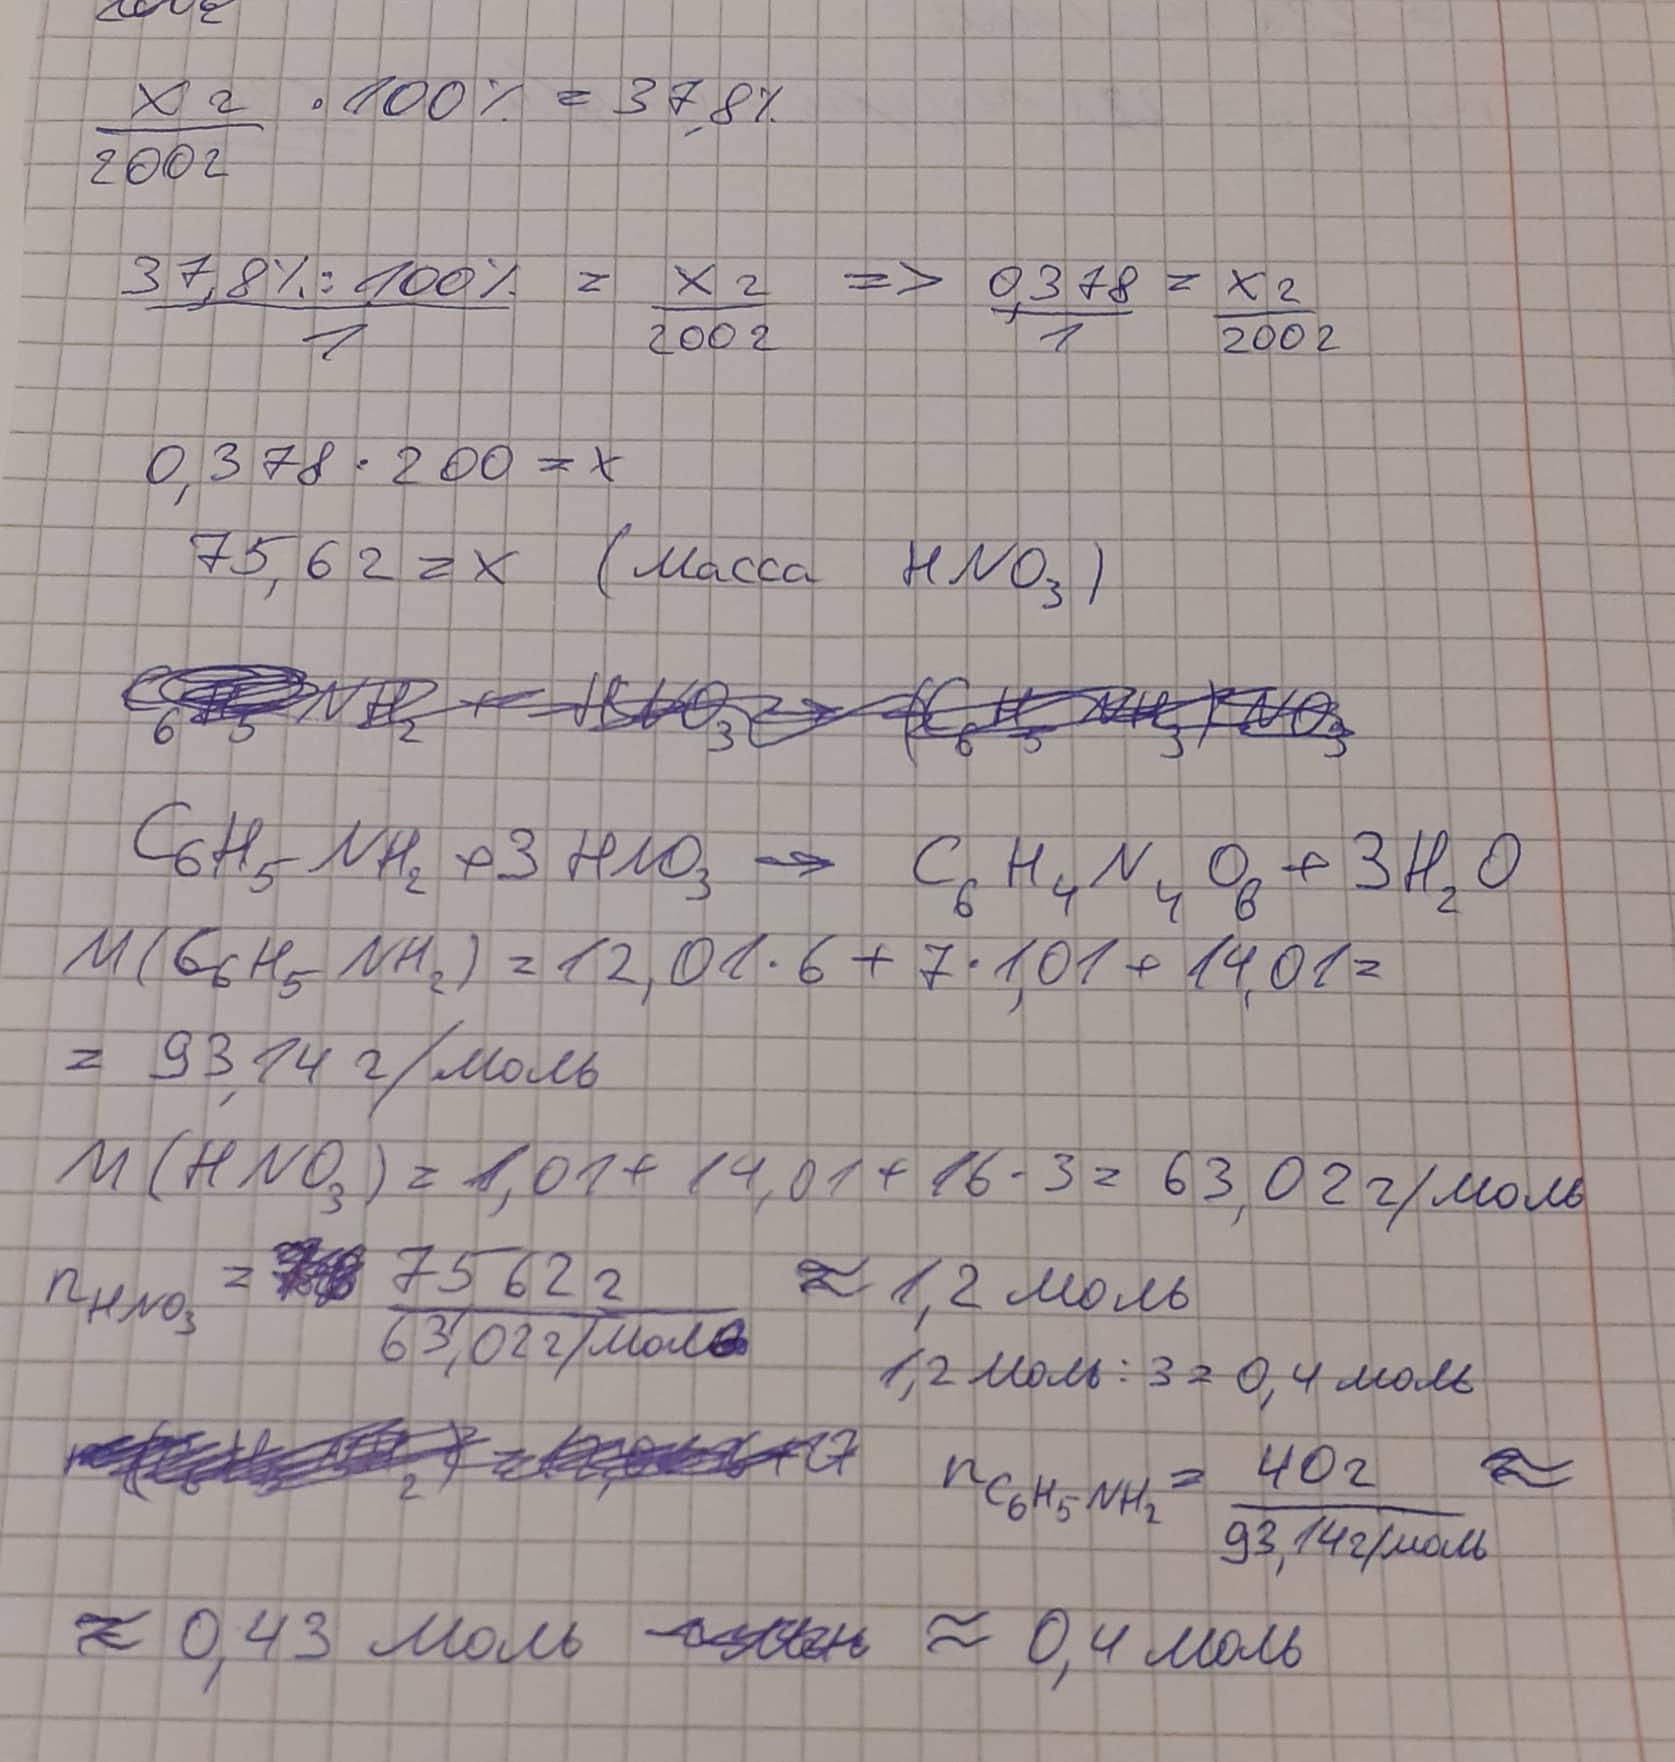 x г / 200 г · 100% = 37,8%
37,8% : 100% / 1 = x г / 200 г => 0,378 / 1 = x г / 200 г
0,378 · 200 = x
75,6 г = x (масса HNO₃)
C₆H₅NH₂ + 3HNO₃ → C₆H₄N₄O₆ + 3H₂O
M(C₆H₅NH₂) = 12,01·6 + 7·1,01 + 14,01 =
= 93,14 г/моль
M(HNO₃) = 1,01 + 14,01 + 16·3 = 63,02 г/моль
n HNO₃ = 75 62 г / 63,02 г/моль ≈ 1,2 моль
1,2 моль : 3 = 0,4 моль
n C₆H₅NH₂ = 40 г / 93,14 г/моль ≈
≈ 0,43 моль ≈ 0,4 моль